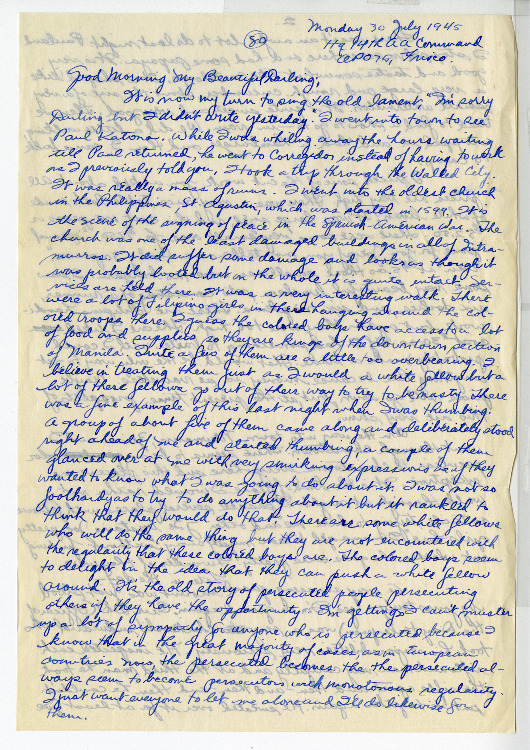 Monday 30 July 1945
(80)
Hq 94th AA Command
APO 75, Frisco.
Good Morning My Beautiful Darling,
It is now my turn to sing the old lament, "I'm sorry
Darling but I didn't write yesterday." I went into town to see
Paul Katona. While I was whiling away the hours waiting
till Paul returned, he went to Corregidor instead of having to work
as I previously told you, I took a trip through the Walled City.
It was really a mass of ruins. I went into the oldest church
in the Philippines, St. Agustin, which was started in 1599. It is
the scene of the signing of peace in the Spanish American War. The
church was one of the least damaged buildings in all of Intra-
muros. It did suffer some damage and looks as though it
was probably looted but on the whole it is quite intact. Ser-
vices are held there. It was a very interesting walk. There
were a lot of Filipino girls in there hanging around the col-
ored troops there. I guess the colored boys have access to a lot
of food and supplies so they are kings of the downtown section
of Manila. Quite a few of them are a little too overbearing. I
believe in treating them just as I would a white fellow but a
lot of these fellows go out of their way to try to be nasty. There
was a fine example of this last night when I was thumbing.
A group of about five of them came along and deliberately stood
right ahead of me and started thumbing, a couple of them
glanced over at me with very smirking expressions as if they
wanted to know what I was going to do about it. I was not so
foolhardy as to try to do anything about it but it rankled to
think that they would do that. There are some white fellows
who will do the same thing but they are not encountered with
the regularity that these colored boys are. The colored boys seem
to delight in the idea that they can push a white fellow
around. It's the old story of persecuted people persecuting
others if they have the opportunity. I'm getting so I can't muster
up a lot of sympathy for anyone who is persecuted because I
know that in the great majority of cases, as in European
countries now, the persecuted becomes the the persecuted al-
ways seem to become persecutors with monotonous regularity.
I just want everyone to let me alone and I'll do likewise for
them.